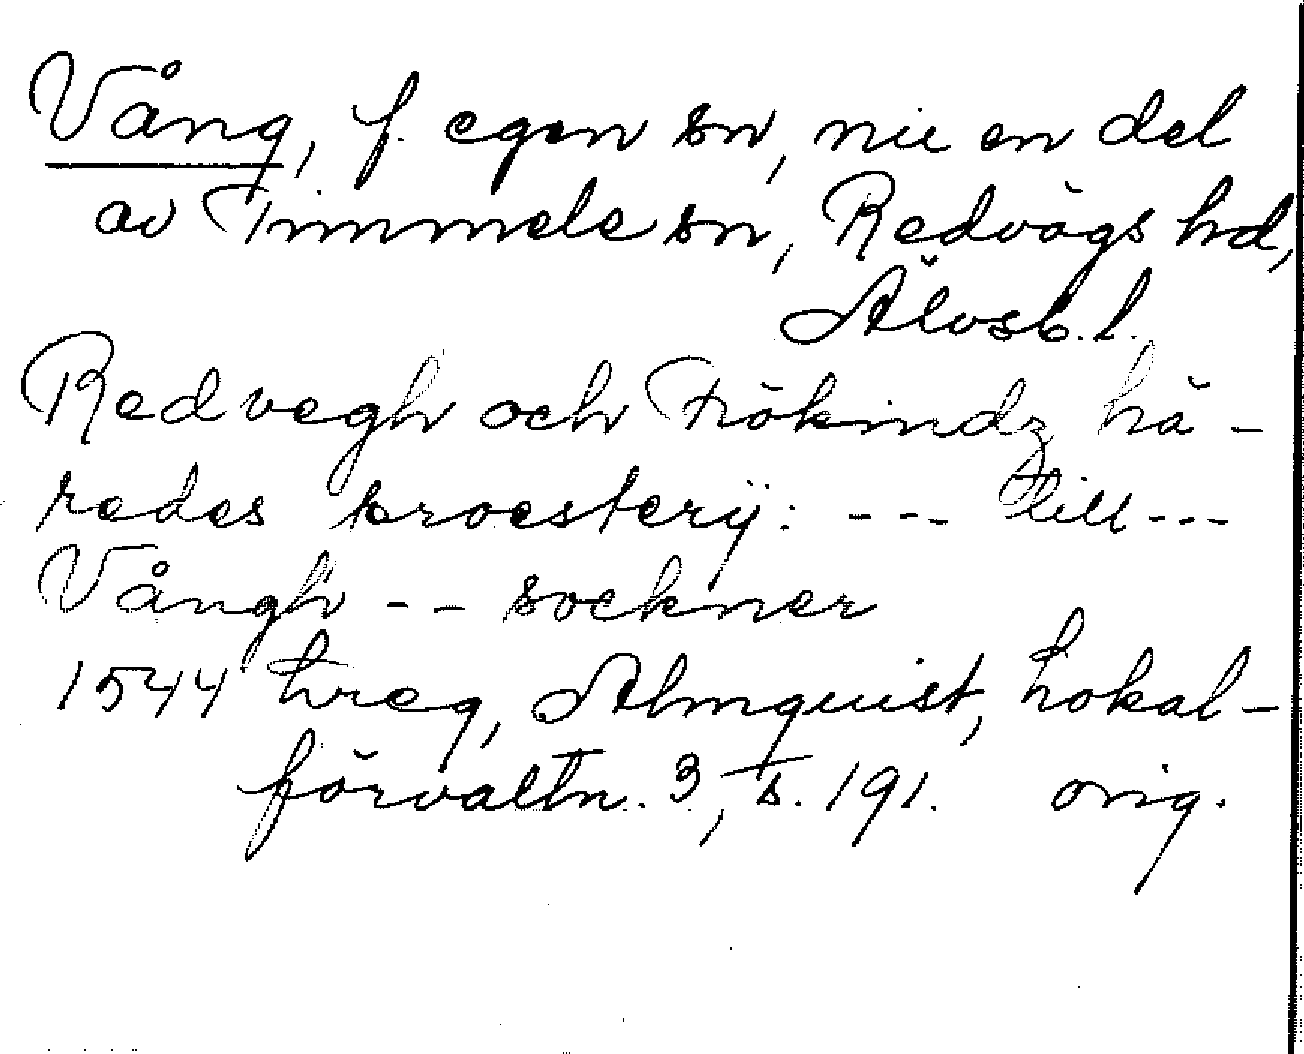 Vång, f. egen sn, nu en del
av Timmele sn, Redvägs hd,
Älvsb. l.
Redvegh och Frökindz hä-
redes proesterij: --- till ---
Vångh -- sockner
1544 treg, Almquist, Lokal-
förvaltn. 3, s. 191. orig.